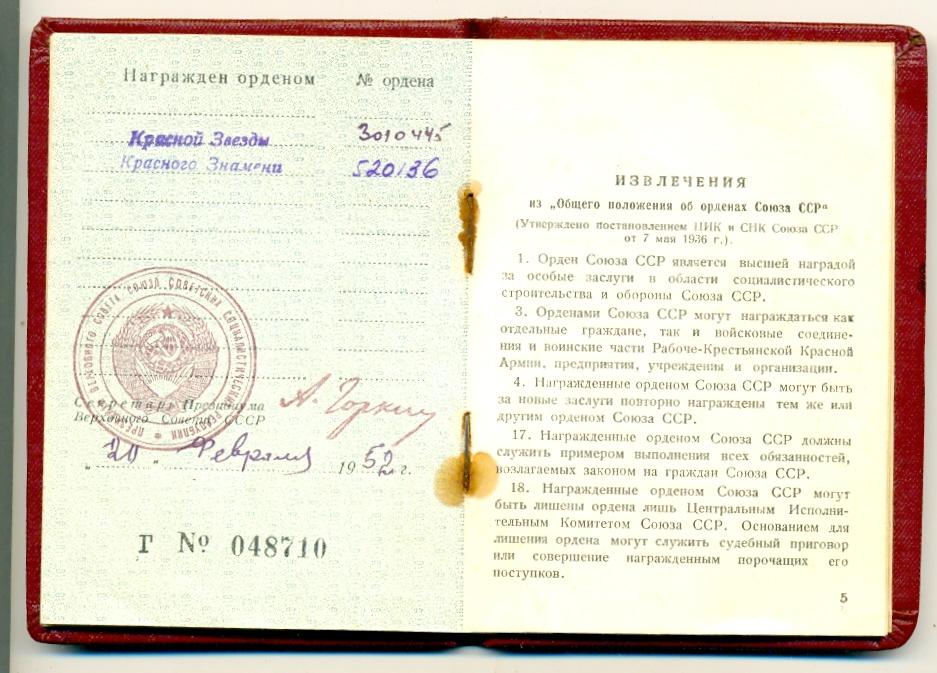 Награжден орденом № ордена
Красной Звезды 3010445
Красного Знамени 520136
ПРЕЗИДИУМ ВЕРХОВНОГО СОВЕТА СОЮЗА СОВЕТСКИХ СОЦИАЛИСТИЧЕСКИХ РЕСПУБЛИК
Секретарь Президиума
Верховного Совета СССР
А. Горкин
„20“ Февраля 1952 г.
Г № 048710
ИЗВЛЕЧЕНИЯ
из „Общего положения об орденах Союза ССР“
(Утверждено постановлением ЦИК и СНК Союза ССР
от 7 мая 1936 г.).
1. Орден Союза ССР является высшей наградой
за особые заслуги в области социалистического
строительства и обороны Союза ССР.
3. Орденами Союза ССР могут награждаться как
отдельные граждане, так и войсковые соедине-
ния и воинские части Рабоче-Крестьянской Красной
Армии, предприятия, учреждения и организации.
4. Награжденные орденом Союза ССР могут быть
за новые заслуги повторно награждены тем же или
другим орденом Союза ССР.
17. Награжденные орденом Союза ССР должны
служить примером выполнения всех обязанностей,
возлагаемых законом на граждан Союза ССР.
18. Награжденные орденом Союза ССР могут
быть лишены ордена лишь Центральным Исполни-
тельным Комитетом Союза ССР. Основанием для
лишения ордена могут служить судебный приговор
или совершение награжденным порочащих его
поступков.
5